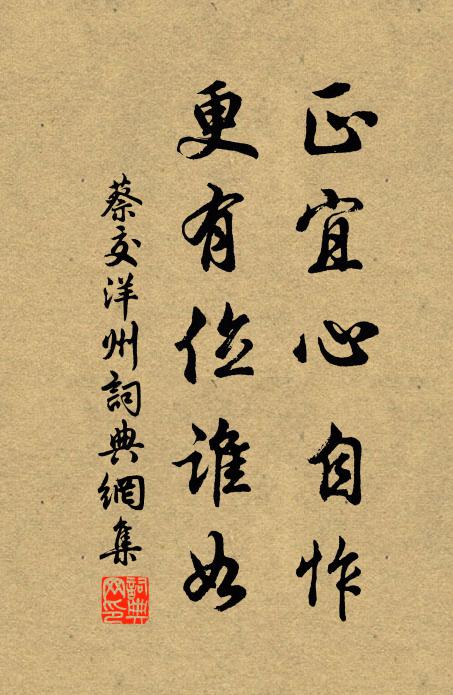 正宜心自怍
更有位誰如
蔡交洋州詞典網集
詞典
网印